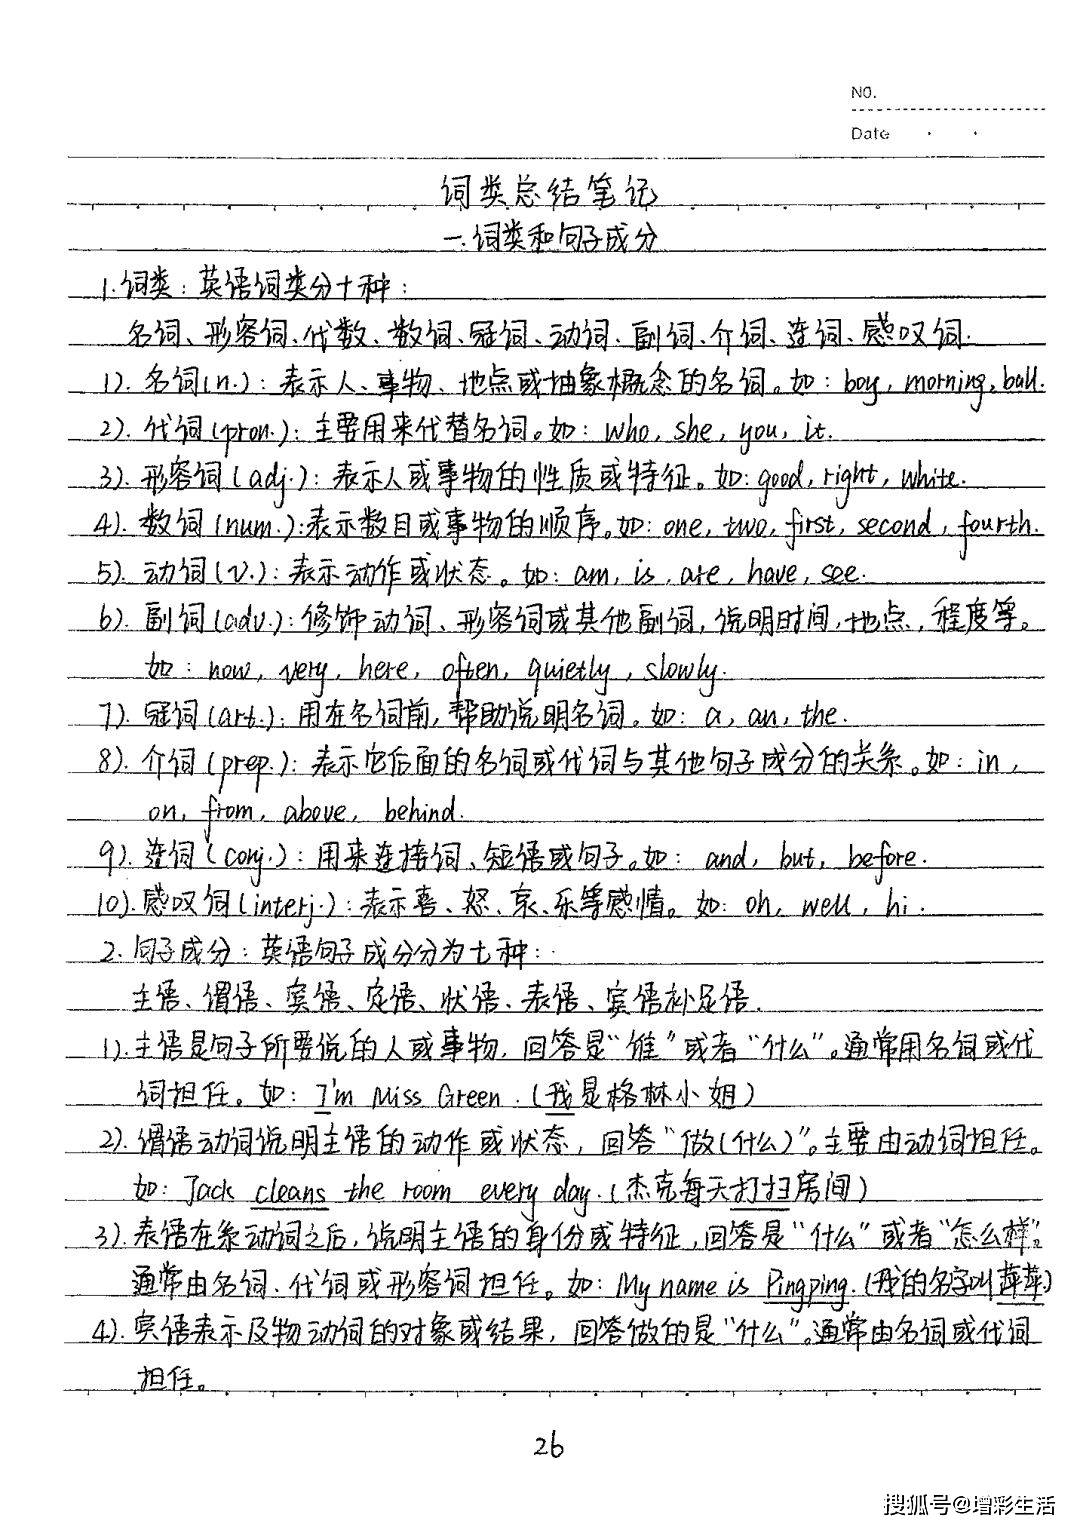 NO.
Date
词类总结笔记
一.词类和句子成分
1.词类：英语词类分十种：
名词、形容词、代数、数词、冠词、动词、副词、介词、连词、感叹词.
1). 名词(n.)：表示人、事物、地点或抽象概念的名词。如：boy, morning, ball.
2). 代词(pron.)：主要用来代替名词。如：who, she, you, it.
3). 形容词(adj.)：表示人或事物的性质或特征。如：good, right, white.
4). 数词(num.)：表示数目或事物的顺序。如：one, two, first, second, fourth.
5). 动词(v.)：表示动作或状态。如：am, is, are, have, see.
6). 副词(adv.)：修饰动词、形容词或其他副词，说明时间，地点，程度等。
如：now, very, here, often, quietly, slowly.
7). 冠词(art.)：用在名词前，帮助说明名词。如：a, an, the.
8). 介词(prep.)：表示它后面的名词或代词与其他句子成分的关系。如：in,
on, from, above, behind.
9). 连词(conj.)：用来连接词、短语或句子。如：and, but, before.
10).感叹词(interj.)：表示喜、怒、哀、乐等感情。如：oh, well, hi.
2. 句子成分：英语句子成分分为七种：
主语、谓语、宾语、定语、状语、表语、宾语补足语.
1).主语是句子所要说的人或事物，回答是“谁”或者“什么”。通常用名词或代
词担任。如：I'm Miss Green.(我是格林小姐)
2). 谓语动词说明主语的动作或状态，回答“做(什么)”。主要由动词担任。
如：Jack cleans the room every day.(杰克每天打扫房间)
3). 表语在系动词之后，说明主语的身份或特征，回答是“什么”或者“怎么样”。
通常由名词、代词或形容词担任。如：My name is Pingping.(我的名字叫萍萍)
4). 宾语表示及物动词的对象或结果，回答做的是“什么”。通常由名词或代词
担任。
26
搜狐号@增彩生活